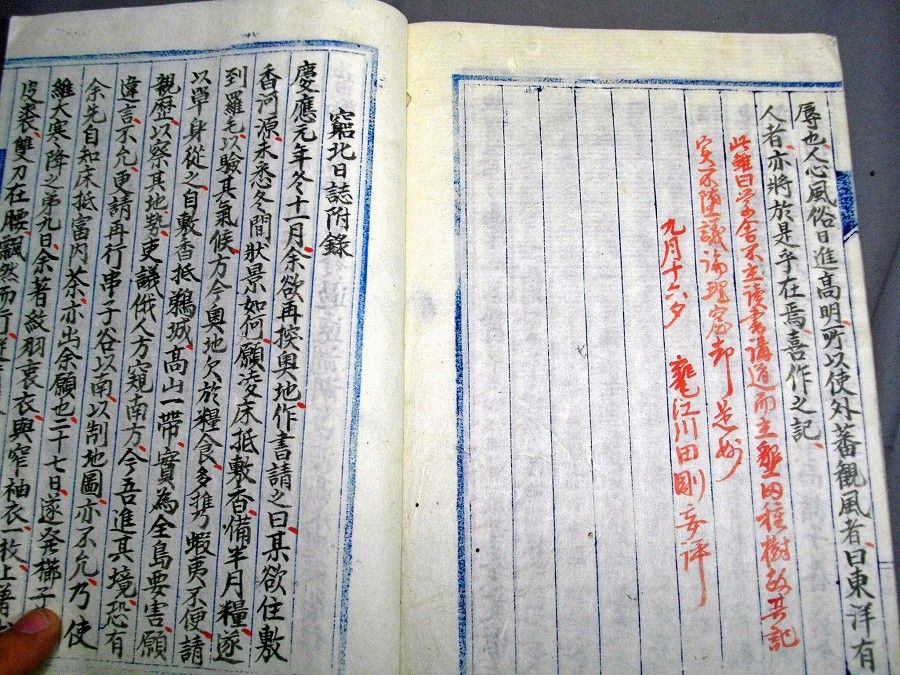 辱也、人心風俗日進高明、所以使外蕃観風者、曰東洋有
人者、亦將於是乎在焉、喜作之記
此雖曰学舎不主読書講道而主墾田種樹故其記
実不堕議論理窟却是妙
九月十六夕 甕江川田剛妄評
窮北日誌附錄
慶應元年冬十一月、余欲再探奥地、作書請之曰、某欲住敷
香河源、未悉冬間狀景如何、願凌床抵敷香、備半月糧、遂
到羅毛、以驗其氣候、方今奥地欠於糧食、多携蝦夷不便、請
以單身從之、自敷香抵鵜城、高山一帶、實為全島要害、願
親歴以察其地勢、吏議俄人方窺南方、今吾進其境、恐有
違言、不允、更請再行串子谷以南、以制地圖、亦不允、乃使
余先自知床抵富内、茶亦出余願也、二十七日、遂発櫛子
維大寒降之第九日、余著紋羽裏衣、與窄袖衣一枚、上著
皮裘、雙刀在腰、飄然而行